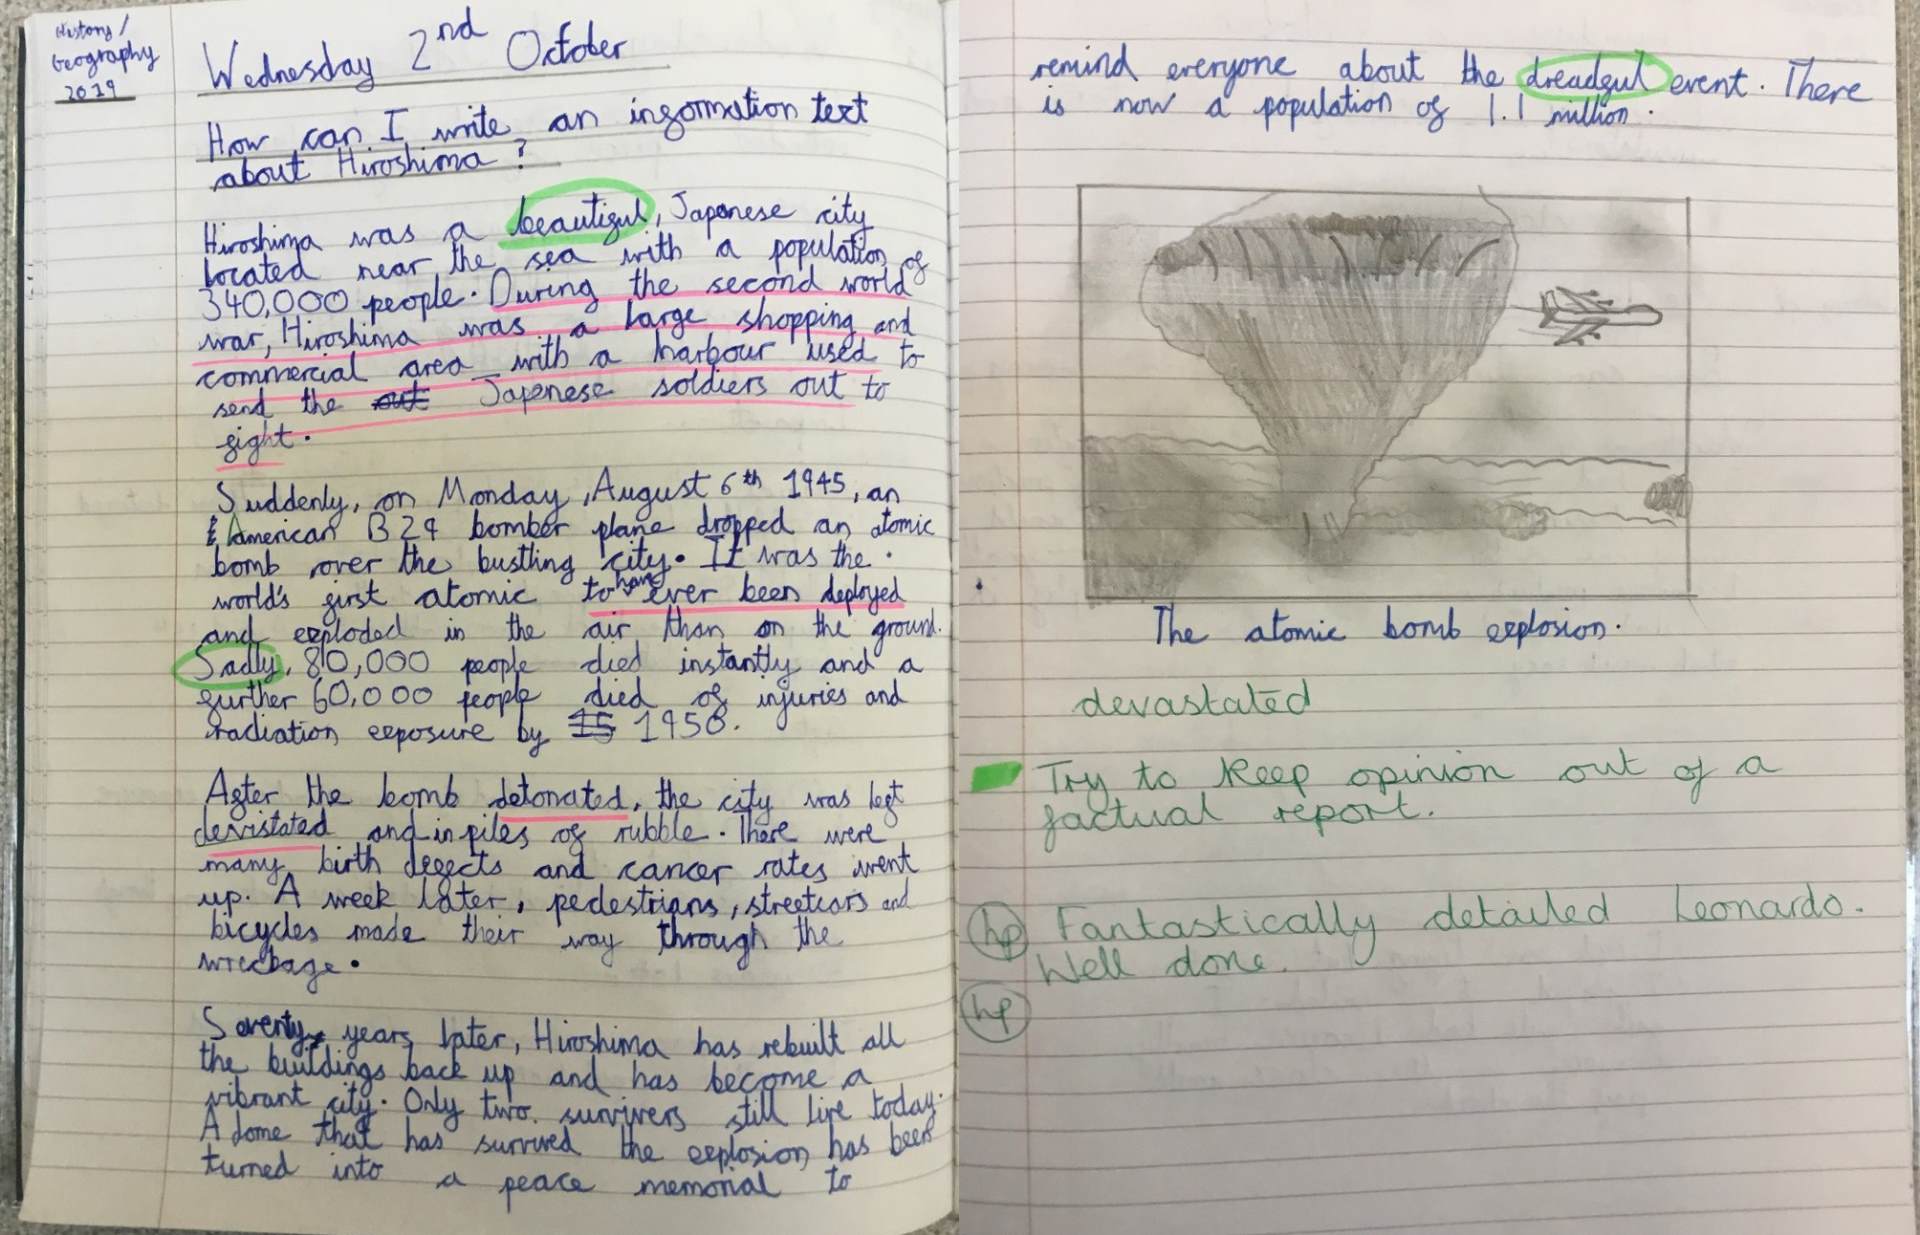 History/
Geography
2019
Wednesday 2nd October
How can I write an information text
about Hiroshima?
Hiroshima was a beautiful, Japanese city
located near the sea with a population of
340,000 people. During the second world
war, Hiroshima was a large shopping and
commercial area with a harbour used to
send the out Japenese soldiers out to
fight.
Suddenly, on Monday, August 6th 1945, an
American B29 bomber plane dropped an atomic
bomb over the bustling city. It was the
world's first atomic to have ever been deployed
and exploded in the air than on the ground.
Sadly, 80,000 people died instantly and a
further 60,000 people died of injuries and
radiation exposure by 15 1950.
After the bomb detonated, the city was left
devistated and in piles of rubble. There were
many birth defects and cancer rates went
up. A week later, pedestrians, streetcars and
bicycles made their way through the
wreckage.
Seventy years later, Hiroshima has rebuilt all
the buildings back up and has become a
vibrant city. Only two survivers still live today.
A dome that has survived the explosion has been
turned into a peace memorial to
remind everyone about the dreadful event. There
is now a population of 1.1 million.
The atomic bomb explosion.
devastated
Try to keep opinion out of a
factual report.
hp Fantastically detailed Leonardo.
Well done.
hp